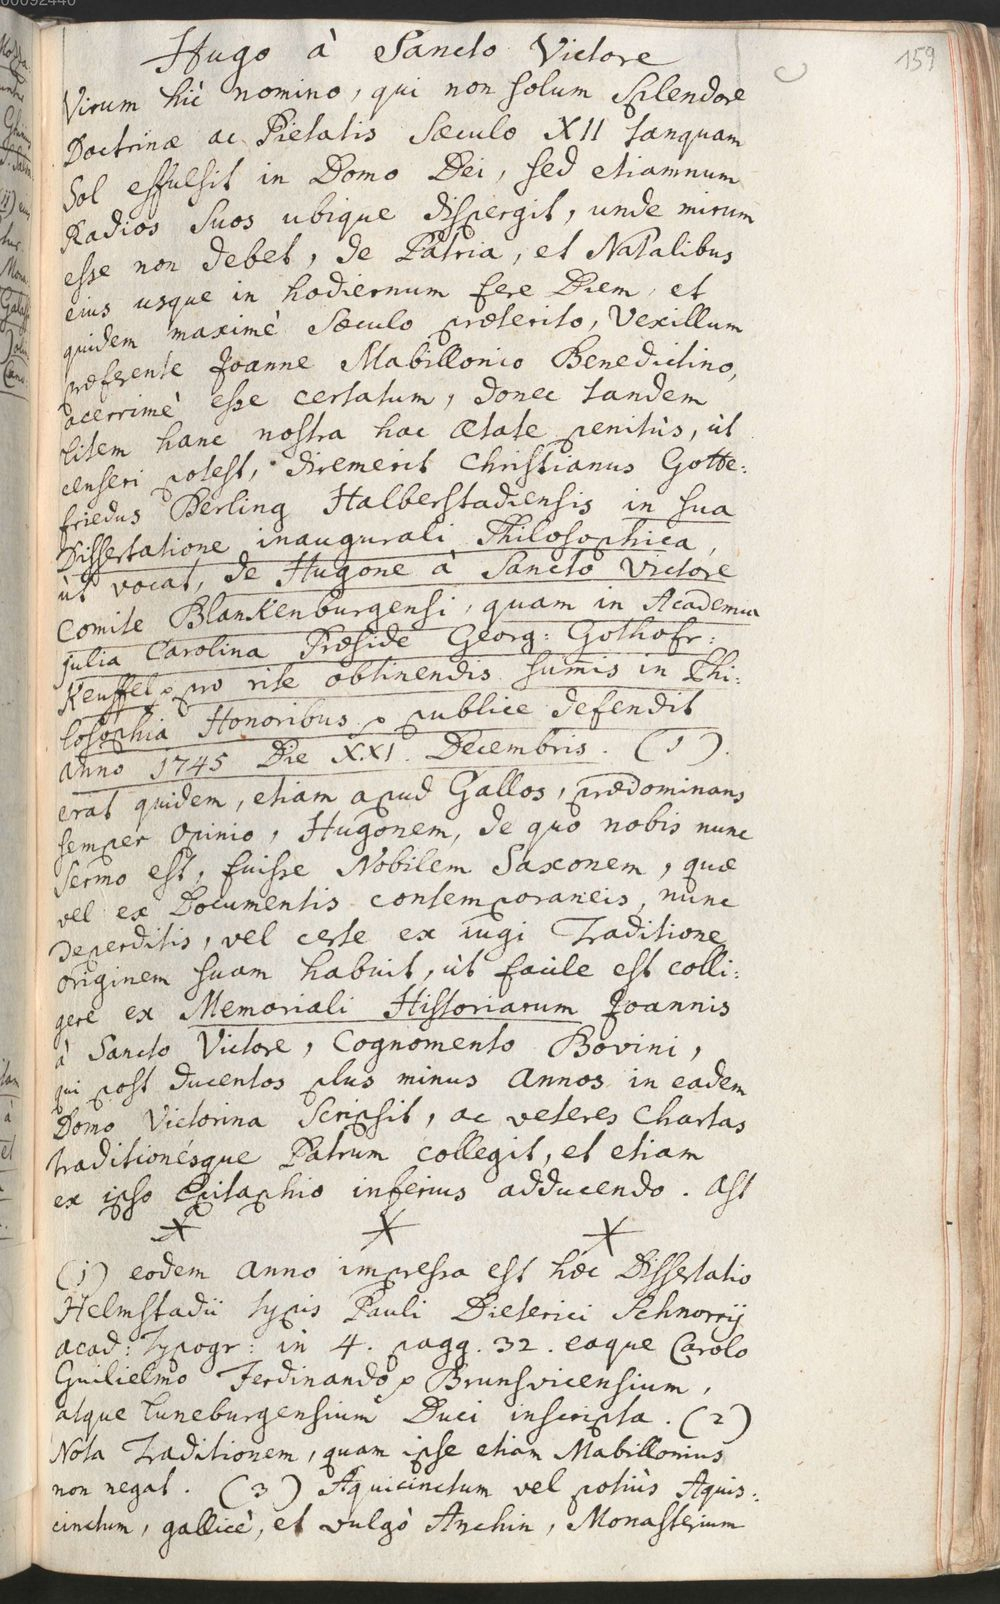 00092440
159
Hugo à Sancto Victore
Virum hìc nomino, qui non solum Splendore
Doctrinæ ac Pietatis Sæculo XII tanquam
Sol effulsit in Domo Dei, sed etiamnum
Radios suos ubique dispergit, unde mirum
esse non debet, de Patria, et Natalibus
eius usque in hodiernum fere Diem, et
quidem maximè Sæculo præterito, Vexillum
præferente Joanne Mabillonio Benedictino,
acerrimè esse certatum, donec tandem
litem hanc nostra hac ætate penitùs, ùt
censeri potest, diremerit Christianus Gotte:
friedus Derling Halberstadiensis in sua
Dissertatione inaugurali Philosophica,
ùt vocat, de Hugone à Sancto Victore
Comite Blankenburgensi, quam in Academia
Julia Carolina Præside Georg: Gothofr:
Keuffel pro rite obtinendis summis in Phi:
losophia Honoribus publice defendit
anno 1745 Die XXI. Decembris. (1).
erat quidem, etiam apud Gallos, prædominans
semper opinio, Hugonem, de quo nobis nunc
Sermo est, fuisse Nobilem Saxonem, quæ
vel ex Documentis contemporaneis, nunc
deperditis, vel certe ex iugi Traditione
originem suam habuit, ùt facile est colli:
gere ex Memoriali Historiarum Joannis
à Sancto Victore, Cognomento Bovini,
qui post ducentos plus minus Annos in eadem
Domo Victorina Scripsit, ac veteres Chartas
traditionésque Patrum collegit, et etiam
ex ipso Epitaphio inferius adducendo. Ast
(1) eodem Anno impressa est hæc Dissertatio
Helmstadii typis Pauli Dieterici Schnorrij
acad: Typogr: in 4. pagg. 32. eaque Carolo
Guilielmo Ferdinando Brunsvicensium,
atque Luneburgensium Duci inscripta. (2)
Nota Traditionem, quam ipse etiam Mabillonius
non negat. (3) Aquicinctum vel potiùs Aquis:
cinctum, gallicè, et vulgò Anchin, Monasterium